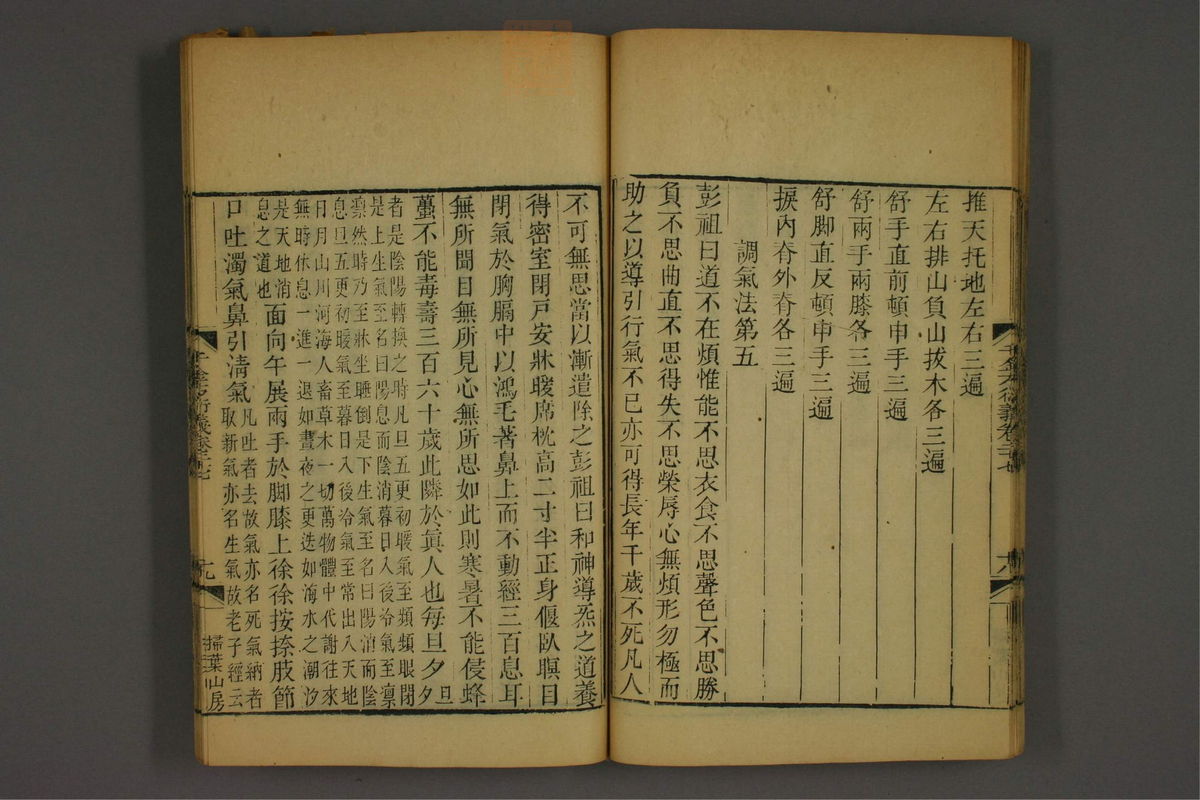 推天托地左右三遍
左右排山負山拔木各三遍
舒手直前頓申手三遍
舒兩手兩膝各三遍
舒脚直反頓申手三遍
捩內脊外脊各三遍
調氣法第五
彭祖曰道不在煩惟能不思衣食不思聲色不思勝
負不思曲直不思得失不思榮辱心無煩形勿極而
助之以導引行氣不已亦可得長年千歲不死凡人
不可無思當以漸遣除之彭祖曰和神導炁之道養
得密室閉戸安牀暖席枕高二寸半正身偃臥瞑目
閉氣於胸膈中以鴻毛著鼻上而不動經三百息耳
無所聞目無所見心無所思如此則寒暑不能侵蜂
蠆不能毒壽三百六十歲此隣於眞人也每旦夕旦夕
者是陰陽轉換之時凡旦五更初暖氣至類類眼閉
是上生氣至名曰陽息而陰消暮日入後冷氣至凛
凛然時乃至牀坐睡倒是下生氣至名曰陽消而陰
息旦五更初暖氣至暮日入後冷氣至常出入天地
日月山川河海人畜草木一切萬物體中代謝往來
無時休息一進一退如晝夜之更迭如海水之潮汐
是天地消息之道也面向午展兩手於脚膝上徐徐按捺肢節
口吐濁氣鼻引淸氣凡吐者去故氣亦名死氣納者取新氣亦名生氣故老子經云
千金方衍義卷二十七
九
掃葉山房